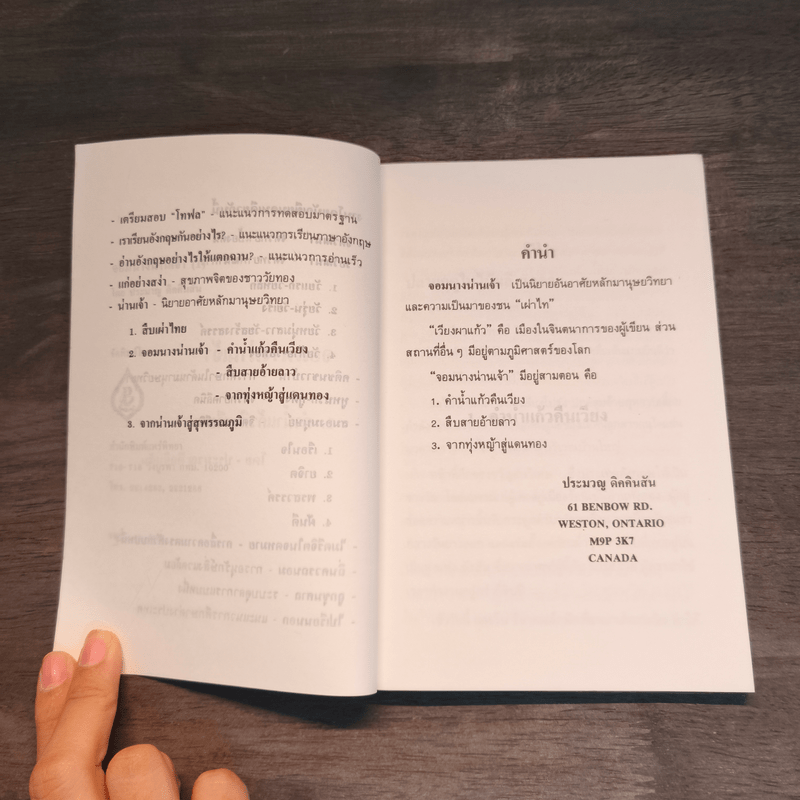 - เตรียมสอบ "โทฟล" - แนะแนวการทดสอบมาตรฐาน
- เราเรียนอังกฤษกันอย่างไร? - แนะแนวการเรียนภาษาอังกฤษ
- อ่านอังกฤษอย่างไรให้แตกฉาน? - แนะแนวการอ่านเร็ว
- แก่อย่างสง่า - สุขภาพจิตของชาววัยทอง
- น่านเจ้า - นิยายอาศัยหลักมานุษยวิทยา
1. สืบเผ่าไทย
2. จอมนางน่านเจ้า - คำน้ำแก้วคืนเวียง
- สืบสายอ้ายลาว
- จากทุ่งหญ้าสู่แดนทอง
3. จากน่านเจ้าสู่สุพรรณภูมิ
คำนำ
จอมนางน่านเจ้า เป็นนิยายอันอาศัยหลักมานุษยวิทยา
และความเป็นมาของชน "เผ่าไท"
"เวียงผาแก้ว" คือ เมืองในจินตนาการของผู้เขียน ส่วน
สถานที่อื่น ๆ มีอยู่ตามภูมิศาสตร์ของโลก
"จอมนางน่านเจ้า" มีอยู่สามตอน คือ
1. คำน้ำแก้วคืนเวียง
2. สืบสายอ้ายลาว
3. จากทุ่งหญ้าสู่แดนทอง
ประมวญ ดิคคินสัน
61 BENBOW RD.
WESTON, ONTARIO
M9P 3K7
CANADA